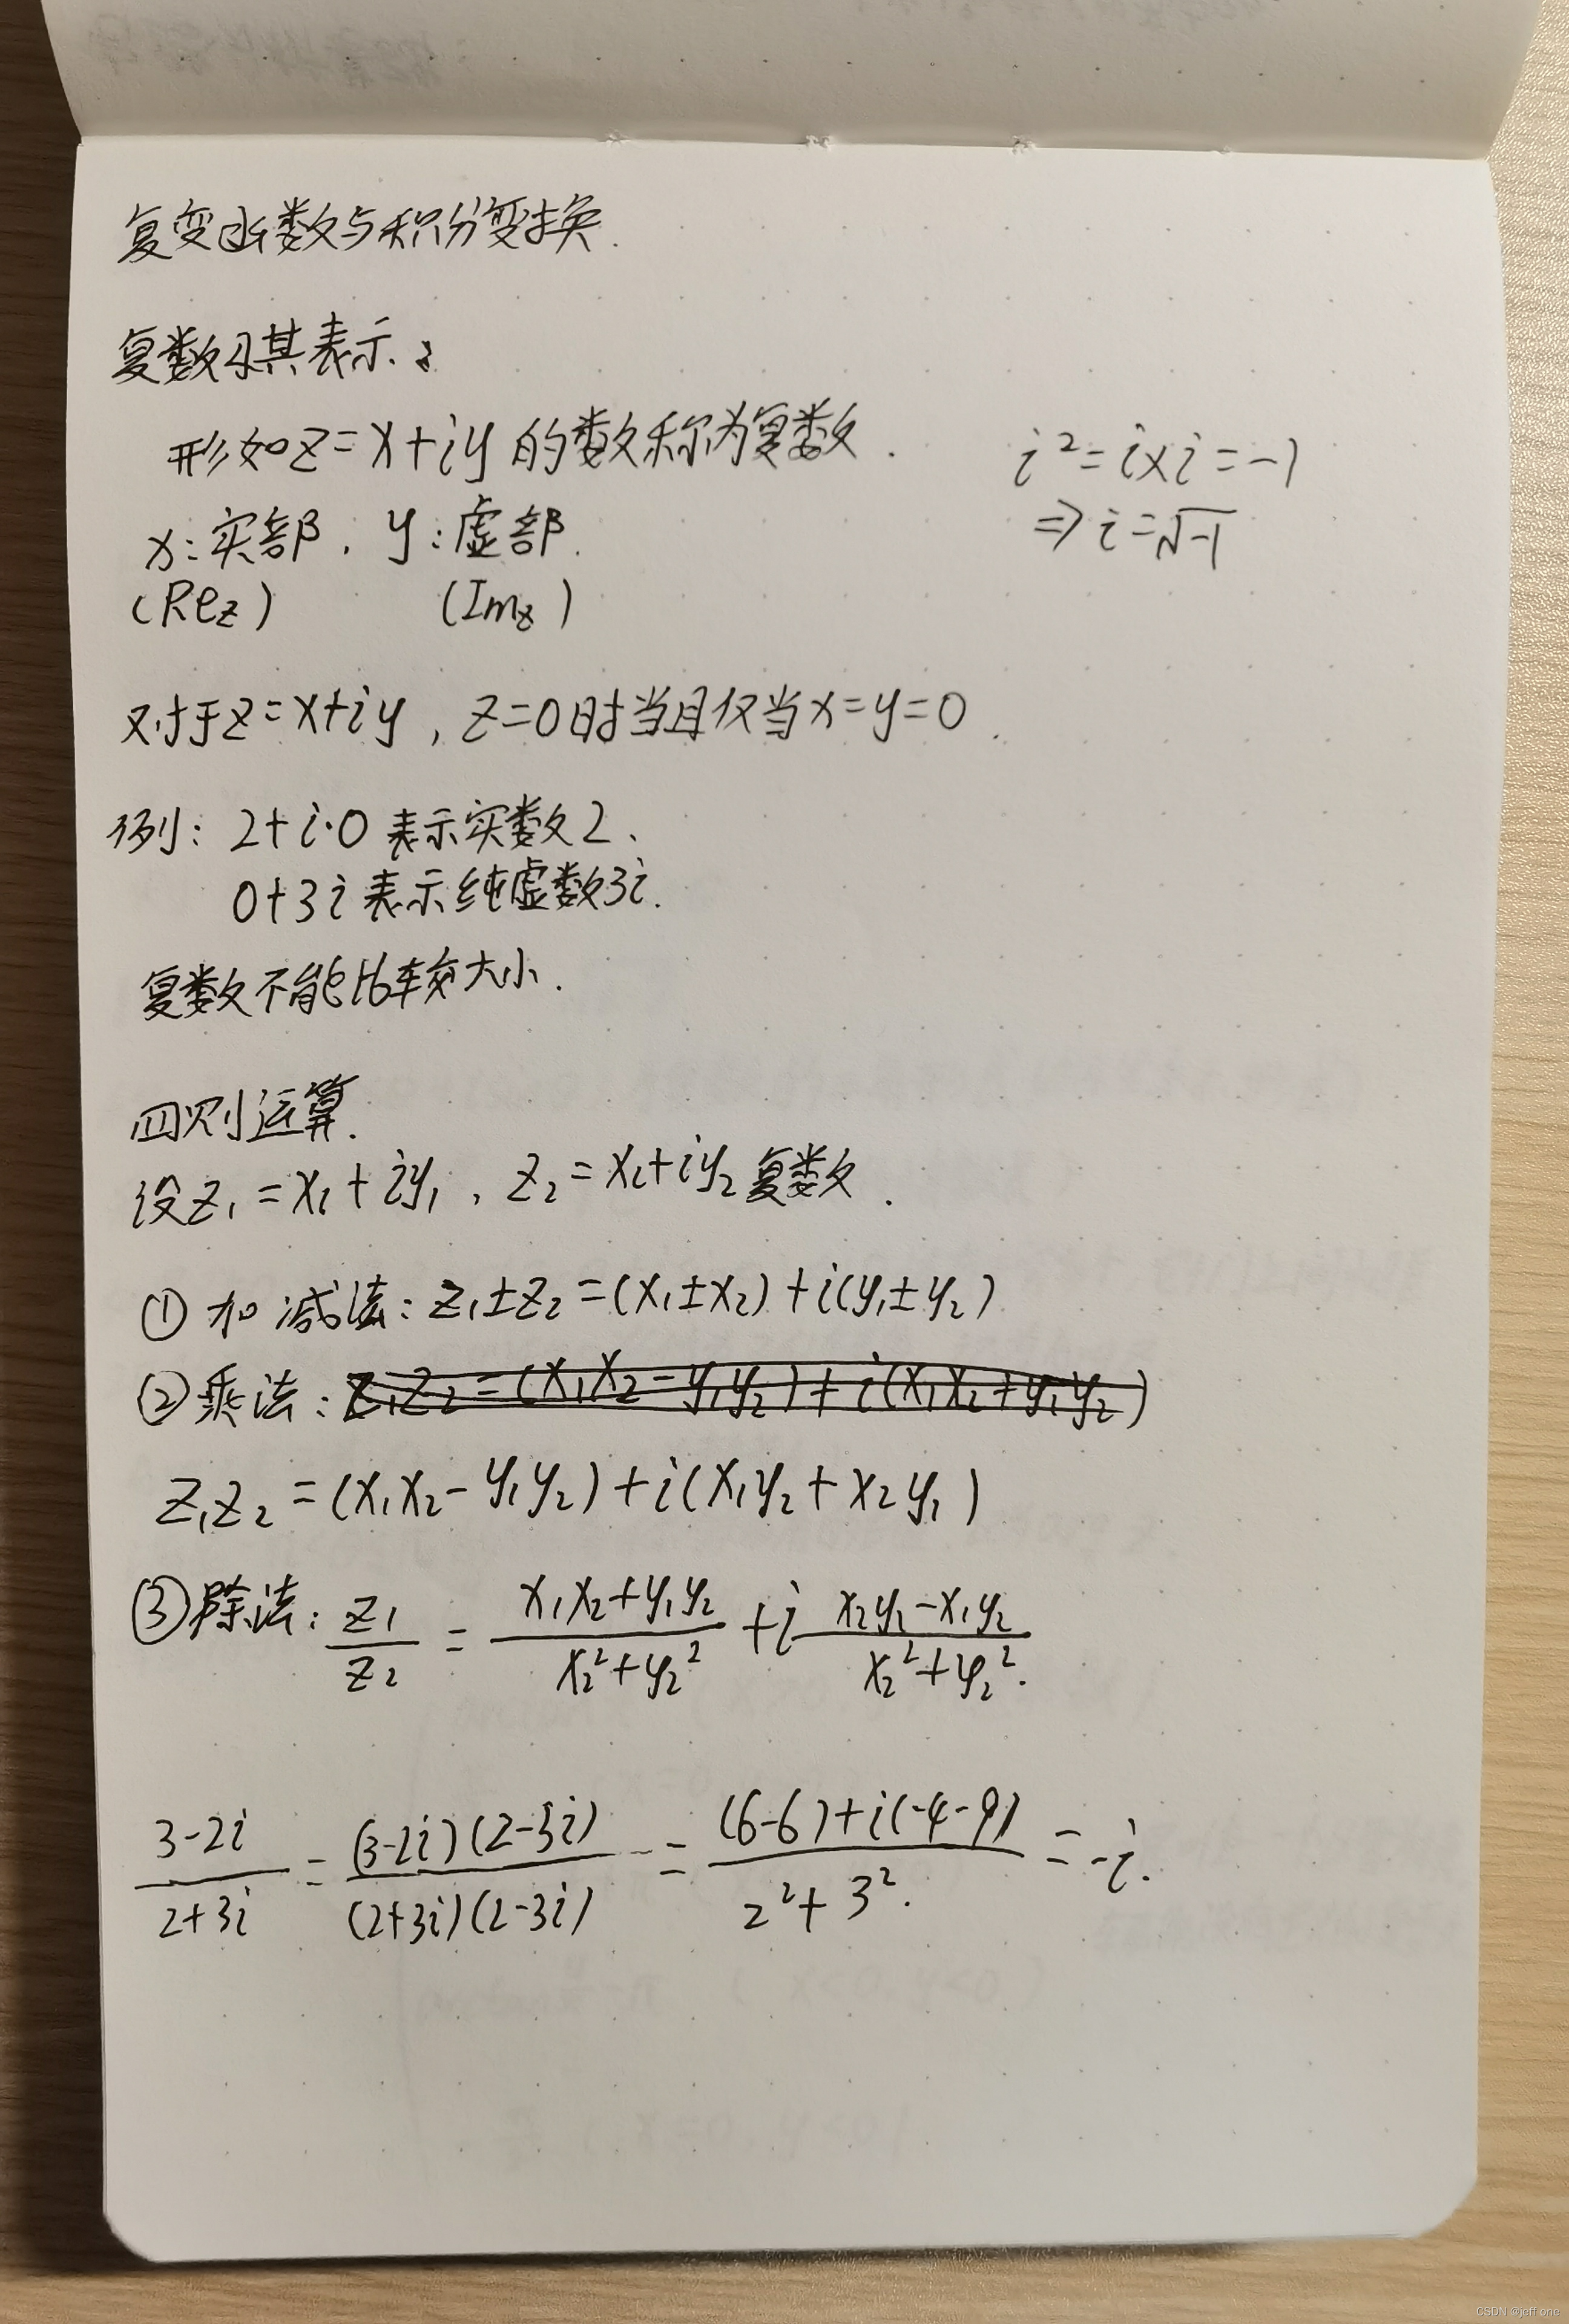 复变函数与积分变换.
复数及其表示.
形如z=x+iy的数称为复数.
i²=i×i=-1
⇒i=√-1
x:实部. y:虚部.
(Rez) (Imz)
对于z=x+iy, z=0时当且仅当x=y=0.
例: 2+i·0 表示实数2、
0+3i 表示纯虚数3i.
复数不能比较大小.
四则运算.
设z₁=x₁+iy₁, z₂=x₂+iy₂复数.
①加减法: z₁±z₂=(x₁±x₂)+i(y₁±y₂)
②乘法: z₁z₂=(x₁x₂-y₁y₂)+i(x₁x₂+y₁y₂)
z₁z₂=(x₁x₂-y₁y₂)+i(x₁y₂+x₂y₁)
③除法: z₁/z₂ = (x₁x₂+y₁y₂)/(x₂²+y₂²) +i (x₂y₁-x₁y₂)/(x₂²+y₂²).
(3-2i)/(2+3i) = (3-2i)(2-3i)/(2+3i)(2-3i) = ((6-6)+i(-4-9))/(2²+3².) = -i.
CSDN @jeff one